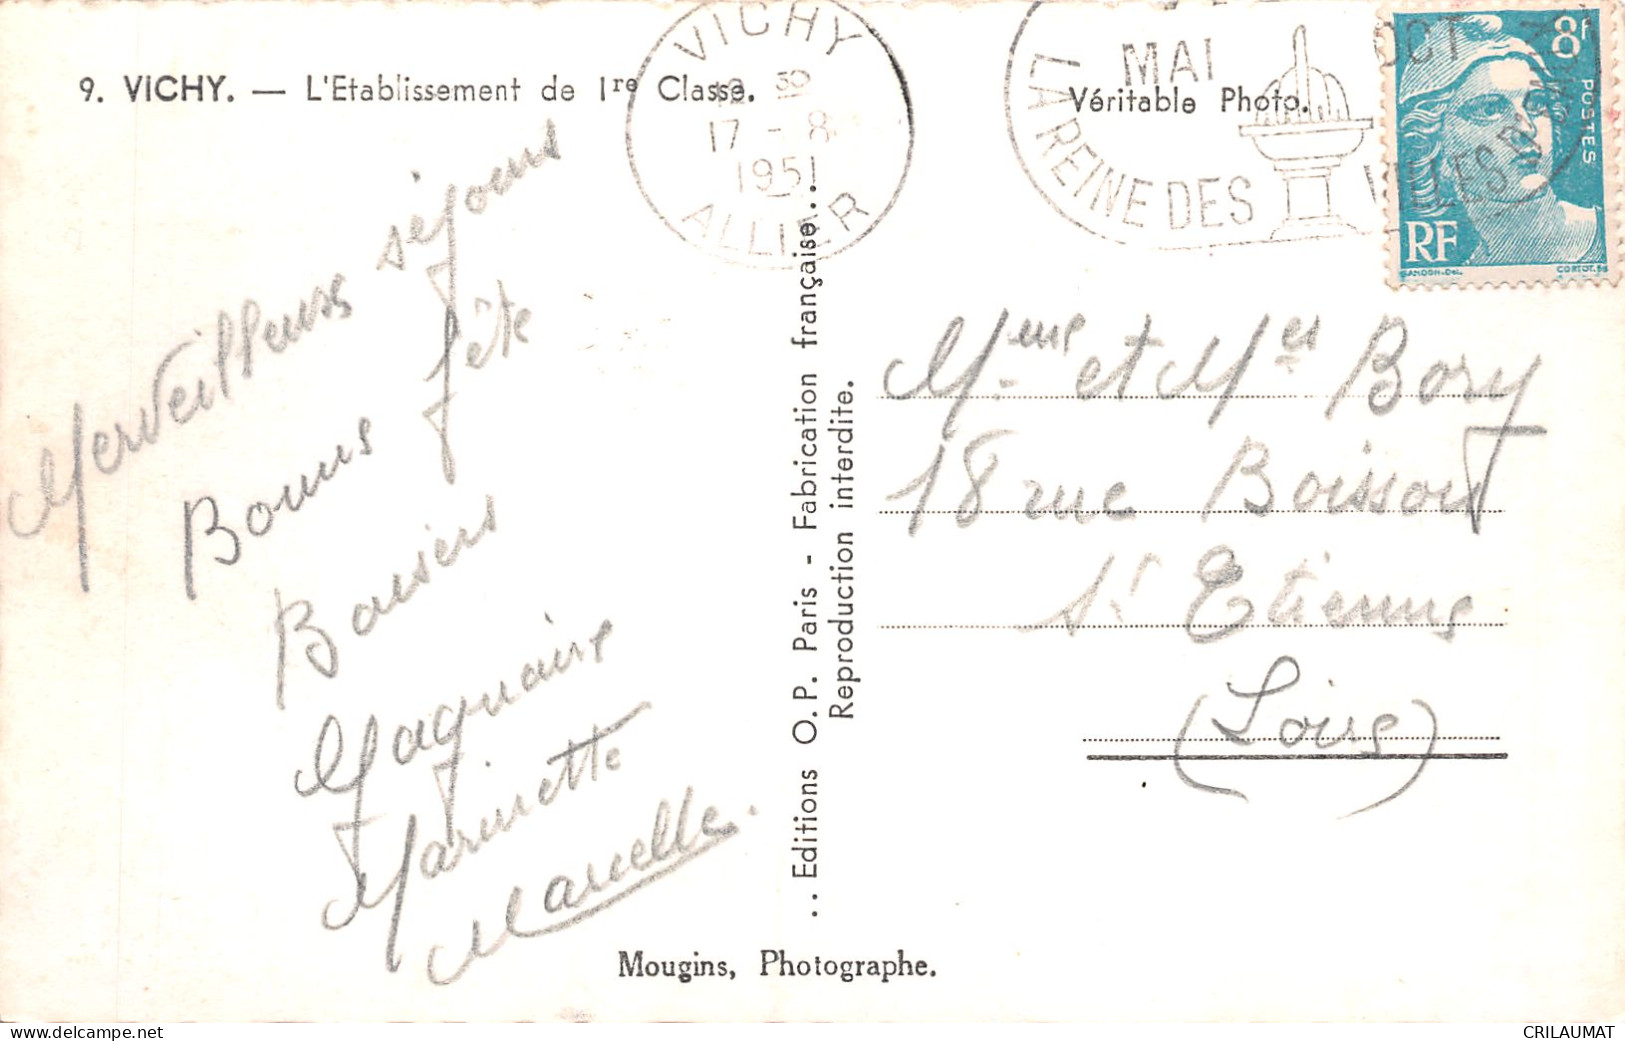 9. VICHY. — L'Etablissement de 1re Classe.
VICHY
17 - 8
1951
ALLIER
MAI
OCT
LA REINE DES VILLES D'
Véritable Photo.
8f
POSTES
RF
GANDON-Del.
CORTOT.Sc
Merveilleux séjours
Bonne fête
Baisers
Marinette
Marcelle.
.. Editions O. P. Paris - Fabrication française...
Reproduction interdite.
Mme et Mer Bory
18 rue Boisson
St Etienne
(Loire)
Mougins, Photographe.
www.delcampe.net
CRILAUMAT